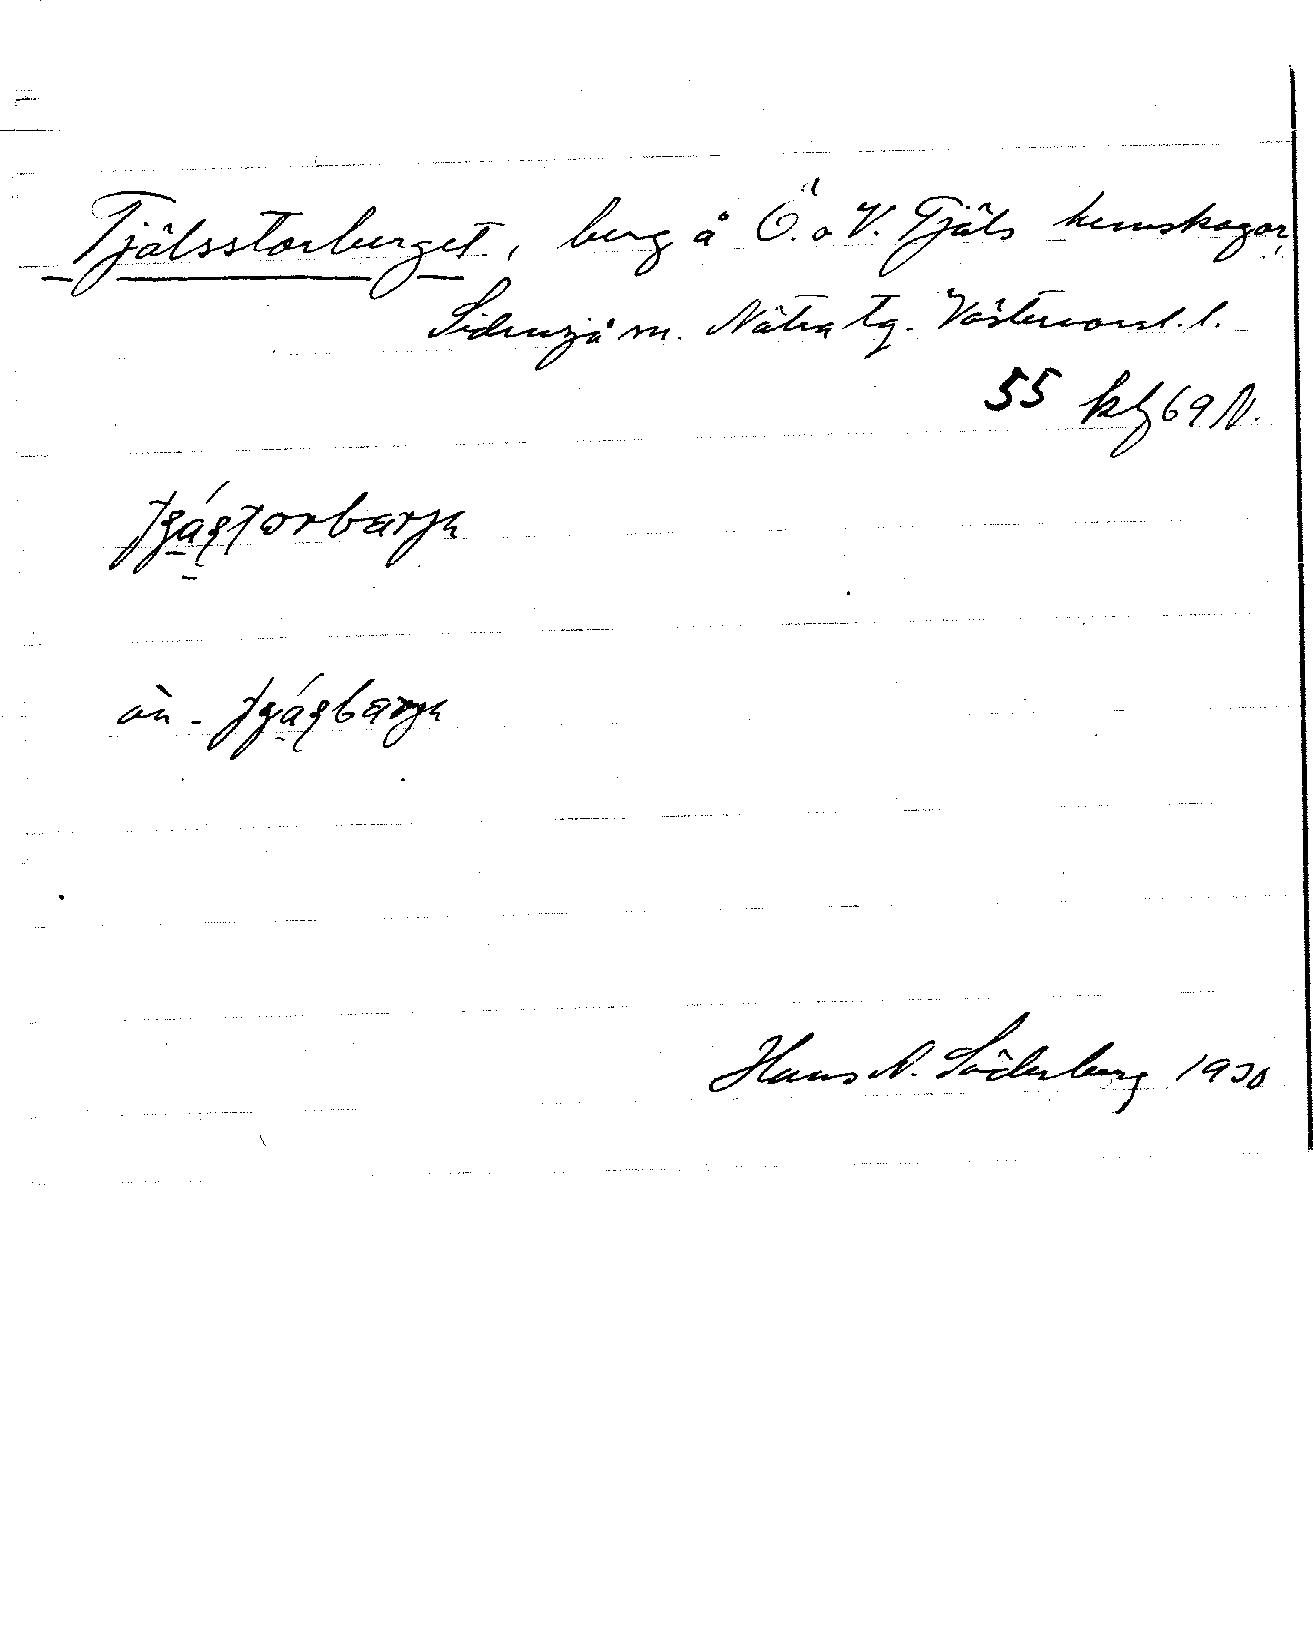 Tjälsstorberget, berg å Ö. o V. Tjäls hemskogar,
Sidensjö sn. Nätra tg. Västernorrl. l.
55 kbl 69 N.
Hans N. Söderberg 1930